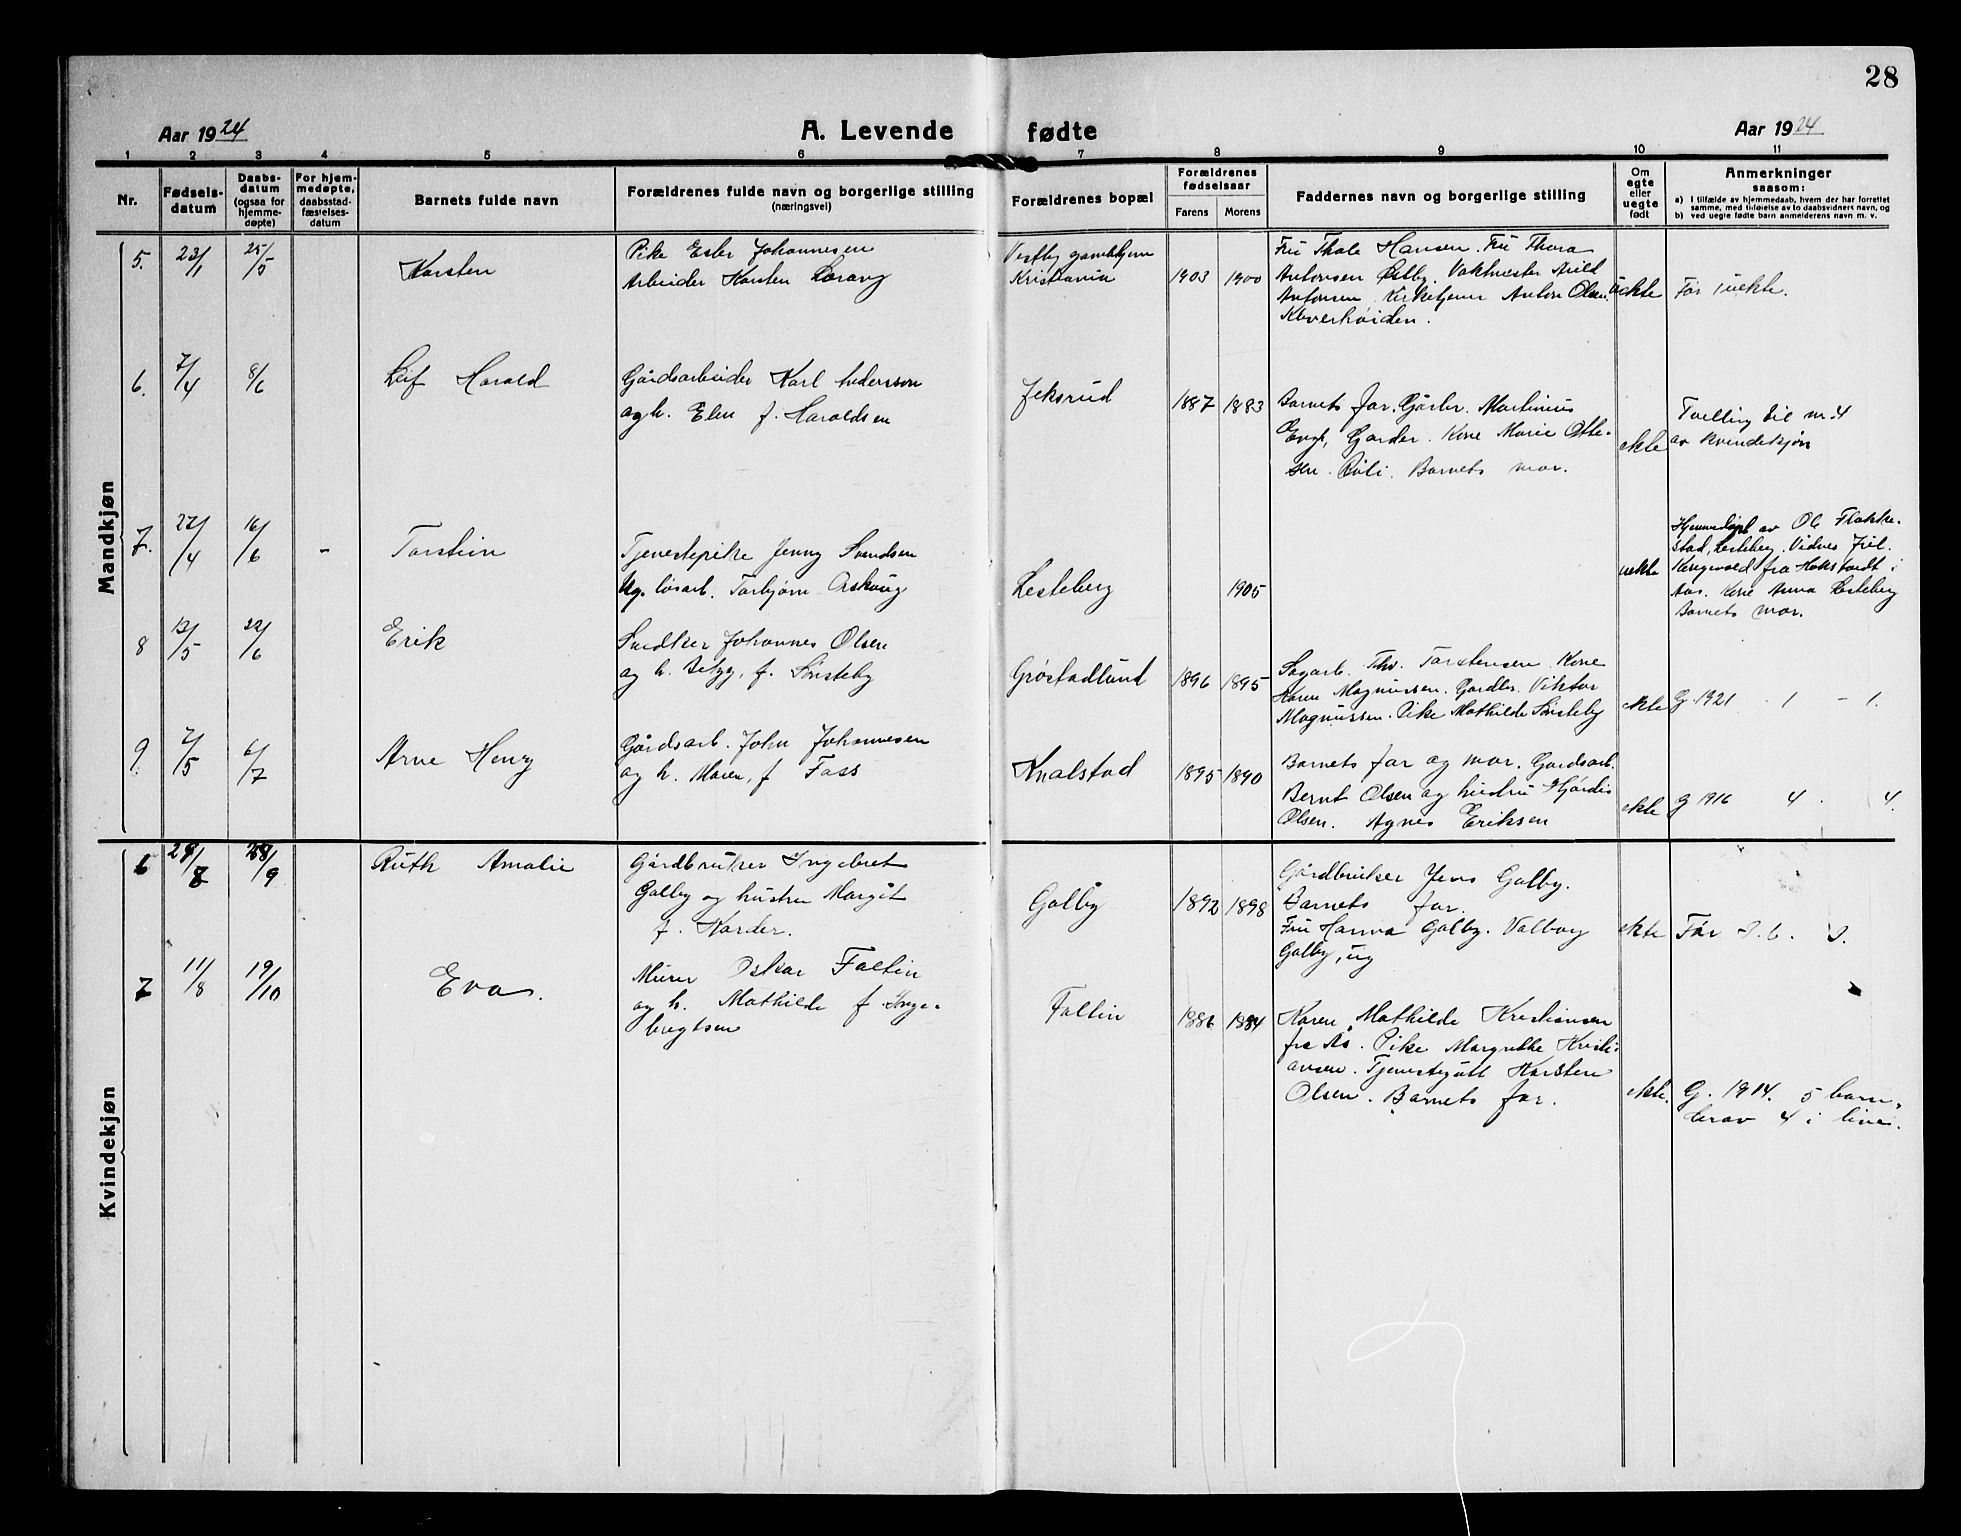 28
Aar 1924
A. Levende fødte
Aar 1924
1 2 3 4 5 6 7 8 9 10 11
Nr.
Fødsels-
datum
Daabs-
datum
(ogsaa for
hjemme-
døpte)
For hjem-
medøpte,
daabsstad-
fæstelses-
datum
Barnets fulde navn
Forældrenes fulde navn og borgerlige stilling
(næringsvei)
Forældrenes bopæl
Forældrenes
fødselsaar
Farens Morens
Faddernes navn og borgerlige stilling
Om
egte
eller
uegte
født
Anmerkninger
saasom:
a) I tilfælde av hjemmedaab, hvem der har forrettet
samme, med tilføielse av to daabsvidners navn, og
b) ved uegte fødte barn anmelderens navn m. v.
Mandkjøn
5. 23/1 25/5
Karsten
Pike Ester Johannesen
Arbeider Karsten
Vestby gamlehjem
Kristiania
1903 1900
Fru Thale Hansen. Fru Thora
Antonsen Østby. Vaktmester Arild
Antonsen. Kirketjener Anton Olsen
Kløverhöiden.
uekte
Før 1 uekte.
6. 7/4 8/6
Leif Harald
Gårdsarbeider Karl Andersson
og h. Elen f. Haraldsen
Jeksrud
1887 1883
Barnets far. Gårbr. Martinius
Garder. Kone Marie Otte-
sen. Röli. Barnets mor.
ekte
Tvelling til nr. 4
av kvindekjøn
7. 27/4 16/6 -
Torstein
Tjenestepike Jenny Svendsen
Ug. løsarb. Torbjørn
Lesteberg
1905
uekte
Hjemmedøpt av Ole Flakke-
stad, Lesteberg. Vidner
fra i
Aas. Kone Anna Lesteberg
Barnets mor.
8 13/5 22/6
Erik
Snedker Johannes Olsen
og h. f. Sönsteby
Gröstadlund
1896 1895
Sagarb. Thv. Torstensen. Kone
Karen Magnussen. Gardbr. Viktor
Magnussen. Pike Mathilde Sönsteby
ekte
G 1921 1 - 1.
9. 2/5 6/7
Arne Henry
Gårdsarb. John Johannesen
og h. Maren, f Fass
Knalstad
1895 1890
Barnets far og mor. Gardsarb.
Bernt Olsen og hustru Hjördis
Olsen. Agnes Eriksen
ekte
g 1916 4. 4.
Kvindekjøn
6 29/8 28/9
Ruth Amalie
Gårdbruker Ingebret
Galby og hustru Margit
f. Korder.
Galby
1892 1898
Gårdbruker Jens Galby.
Barnets far.
Fru Hanna Galby. Valborg
Galby, ug
ekte
Før
7 11/8 19/10
Eva.
Murer Oskar Faltin
og h. Mathilde f. Inge-
bregtsen
Faltin
1886 1884
Karen Mathilde Kristiansen
fra As. Pike Margrethe Kristi-
ansen. Tjenestegutt Karsten
Olsen. Barnets far.
ekte.
G. 1914. 5 barn,
herav 4 i live.